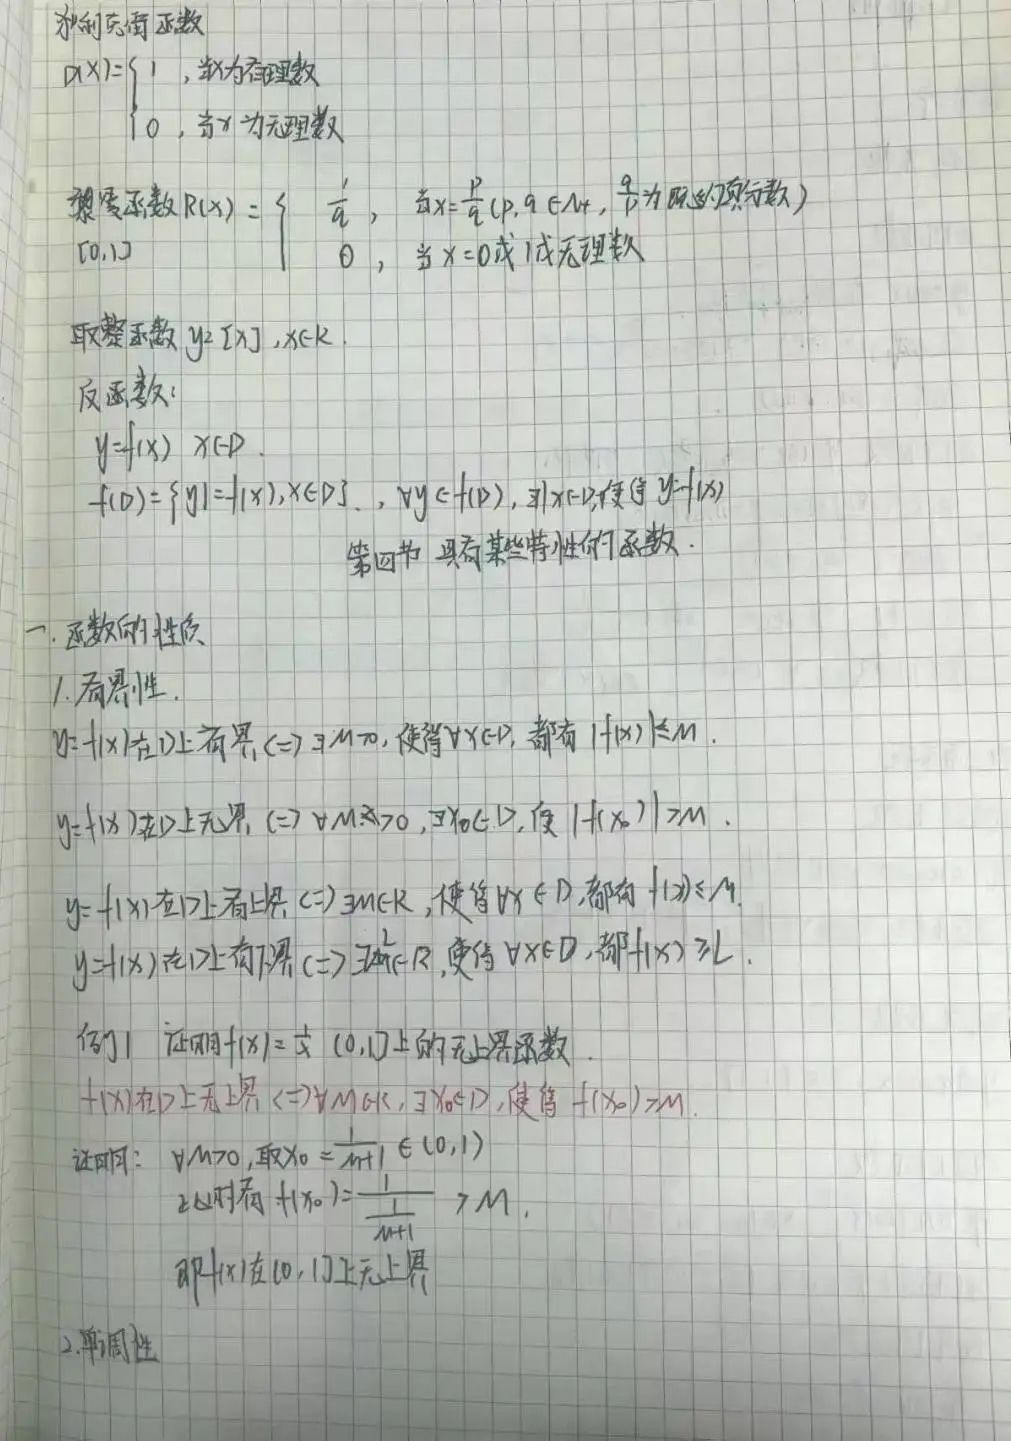 狄利克雷函数
D(x)={ 1 , 当x为有理数
0 , 当x为无理数
黎曼函数R(x) = { 1/q , 当x=p/q (p,q∈N+, q/p为既约真分数)
[0,1] 0 , 当x=0或1或无理数
取整函数 y=[x] , x∈R.
反函数:
y=f(x) x∈D.
f(D)={y|=f(x),x∈D}. , ∀y∈f(D), ∃|x∈D,使得 y=f(x)
第四节 具有某些特性的函数.
一.函数的性质
1.有界性.
y=f(x)在D上有界(=)∃M>0,使得∀x∈D,都有|f(x)|≤M.
y=f(x)在D上无界(=)∀M>0,∃x₀∈D,使|f(x₀)|>M.
y=f(x)在D上有上界(=)∃M∈R,使得∀x∈D,都有f(x)≤M.
y=f(x)在D上有下界(=)∃L∈R,使得∀x∈D,都f(x)≥L.
例1 证明f(x)=1/x (0,1]上的无上界函数.
f(x)在D上无上界(=)∀M∈R,∃x₀∈D,使得 f(x₀)>M.
证明: ∀M>0,取x₀=1/(M+1)∈(0,1)
此时有 f(x₀)=1/(1/(M+1)) >M.
即f(x)在(0,1]上无上界
2.单调性